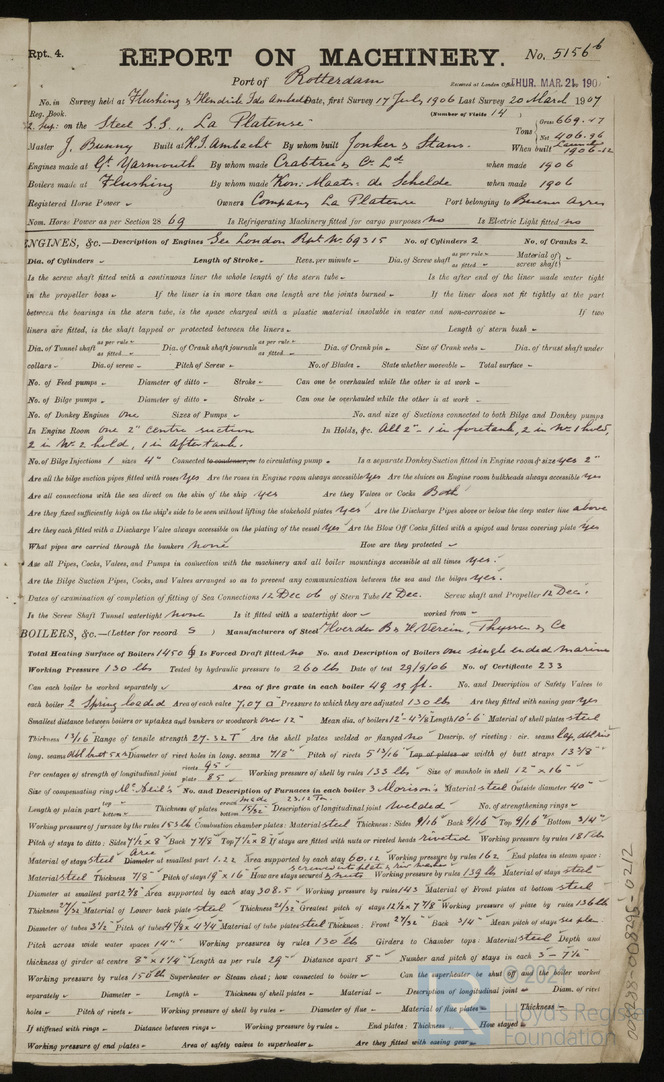 Rpt. 4.
REPORT ON MACHINERY.
No. 5156 b
Port of Rotterdam
Received at London Office THUR. MAR. 21. 190
No. in Survey held at Flushing & Hendrik Ido Ambacht Date, first Survey 17 July 1906 Last Survey 20 March 1907
Reg. Book.
(Number of Visits 14)
2. Sup. on the Steel S.S. „ La Platense
Tons { Gross 669.17
Net 406.96
Master J. Bunny Built at H. I. Ambacht By whom built Jonker & Stans. When built 1906-12
Engines made at Gt. Yarmouth By whom made Crabtree & Co. Ld when made 1906
Boilers made at Flushing By whom made Kon: Maats: de Schelde when made 1906
Registered Horse Power Owners Company La Platense Port belonging to Buenos Ayres
Nom. Horse Power as per Section 28 69 Is Refrigerating Machinery fitted for cargo purposes no Is Electric Light fitted no
ENGINES, &c.—Description of Engines See London Rpt. No. 69315 No. of Cylinders 2 No. of Cranks 2
Dia. of Cylinders Length of Stroke Revs. per minute Dia. of Screw shaft as per rule as fitted Material of screw shaft
Is the screw shaft fitted with a continuous liner the whole length of the stern tube Is the after end of the liner made water tight
in the propeller boss If the liner is in more than one length are the joints burned If the liner does not fit tightly at the part
between the bearings in the stern tube, is the space charged with a plastic material insoluble in water and non-corrosive If two
liners are fitted, is the shaft lapped or protected between the liners Length of stern bush
Dia. of Tunnel shaft as per rule as fitted Dia. of Crank shaft journals as per rule as fitted Dia. of Crank pin Size of Crank webs Dia. of thrust shaft under
collars Dia. of screw Pitch of Screw No. of Blades State whether moveable Total surface
No. of Feed pumps Diameter of ditto Stroke Can one be overhauled while the other is at work
No. of Bilge pumps Diameter of ditto Stroke Can one be overhauled while the other is at work
No. of Donkey Engines One Sizes of Pumps No. and size of Suctions connected to both Bilge and Donkey pumps
In Engine Room one 2" centre suction In Holds, &c. All 2" - 1 in foretank, 2 in No. 1 hold,
2 in No. 2 hold, 1 in Aftertank.
No. of Bilge Injections 1 sizes 4" Connected to condenser, or to circulating pump Is a separate Donkey Suction fitted in Engine room & size yes 2"
Are all the bilge suction pipes fitted with roses yes Are the roses in Engine room always accessible yes Are the sluices on Engine room bulkheads always accessible yes
Are all connections with the sea direct on the skin of the ship yes Are they Valves or Cocks Both
Are they fixed sufficiently high on the ship's side to be seen without lifting the stokehold plates yes Are the Discharge Pipes above or below the deep water line above
Are they each fitted with a Discharge Valve always accessible on the plating of the vessel yes Are the Blow Off Cocks fitted with a spigot and brass covering plate yes
What pipes are carried through the bunkers none How are they protected
Are all Pipes, Cocks, Valves, and Pumps in connection with the machinery and all boiler mountings accessible at all times yes.
Are the Bilge Suction Pipes, Cocks, and Valves arranged so as to prevent any communication between the sea and the bilges yes.
Dates of examination of completion of fitting of Sea Connections 12 Dec 06 of Stern Tube 12 Dec. Screw shaft and Propeller 12 Dec.
Is the Screw Shaft Tunnel watertight none Is it fitted with a watertight door worked from
BOILERS, &c.—(Letter for record S) Manufacturers of Steel Hoerder B & H Verein, Thyssen & Co
Total Heating Surface of Boilers 1450 Is Forced Draft fitted no No. and Description of Boilers one single ended marine
Working Pressure 130 lbs Tested by hydraulic pressure to 260 lbs Date of test 29/9/06 No. of Certificate 233
Can each boiler be worked separately Area of fire grate in each boiler 49 sq ft. No. and Description of Safety Valves to
each boiler 2 Spring loaded Area of each valve 7,07 □" Pressure to which they are adjusted 130 lbs Are they fitted with easing gear yes
Smallest distance between boilers or uptakes and bunkers or woodwork over 12" Mean dia. of boilers 12'-4⅞ Length 10'-6" Material of shell plates steel
Thickness 13/16 Range of tensile strength 27-32 T Are the shell plates welded or flanged no Descrip. of riveting: cir. seams lap, dbl riv
long. seams dbl butt Diameter of rivet holes in long. seams 7/8" Pitch of rivets 5 13/16 Lap of plates or width of butt straps 13 3/8"
Per centages of strength of longitudinal joint rivets 95 plate 85 Working pressure of shell by rules 133 lbs Size of manhole in shell 12" x 16"
Size of compensating ring McNeil's No. and Description of Furnaces in each boiler 3 Morison's Material steel Outside diameter 40"
Length of plain part top bottom Thickness of plates crown bottom 15/32" Description of longitudinal joint welded No. of strengthening rings
Working pressure of furnace by the rules 153 lb Combustion chamber plates: Material steel Thickness: Sides 9/16 Back 9/16" Top 9/16" Bottom 3/4"
Pitch of stays to ditto: Sides 7½ x 8 Back 7 7/8 Top 7½ x 8 If stays are fitted with nuts or riveted heads riveted Working pressure by rules
Material of stays steel Area Diameter at smallest part 1.22 Area supported by each stay 60.12 Working pressure by rules 162 End plates in steam space:
Material steel Thickness 7/8" Pitch of stays 19" x 16" How are stays secured & nuts Working pressure by rules 139 lb Material of stays steel
Diameter at smallest part 2 7/8 Area supported by each stay 308.5 Working pressure by rules 143 Material of Front plates at bottom steel
Thickness 27/32 Material of Lower back plate steel Thickness 21/32 Greatest pitch of stays 12½ x 7 7/8 Working pressure of plate by rules 136 lb
Diameter of tubes 3½ Pitch of tubes 4 7/8 x 4¾ Material of tube plates steel Thickness: Front 27/32" Back 3/4" Mean pitch of stays see plan
Pitch across wide water spaces 14" Working pressures by rules 130 lb Girders to Chamber tops: Material steel Depth and
thickness of girder at centre 8" x 1¼" Length as per rule 29" Distance apart 8" Number and pitch of stays in each 3 - 7½"
Working pressure by rules 150 lb Superheater or Steam chest; how connected to boiler Can the superheater be shut off and the boiler worked
separately Diameter Length Thickness of shell plates Material Description of longitudinal joint Diam. of rivet
holes Pitch of rivets Working pressure of shell by rules Diameter of flue Material of flue plates Thickness
If stiffened with rings Distance between rings Working pressure by rules End plates: Thickness How stayed
Working pressure of end plates Area of safety valves to superheater Are they fitted with easing gear
© 2021
Lloyd's Register
Foundation
008288-008298-0212